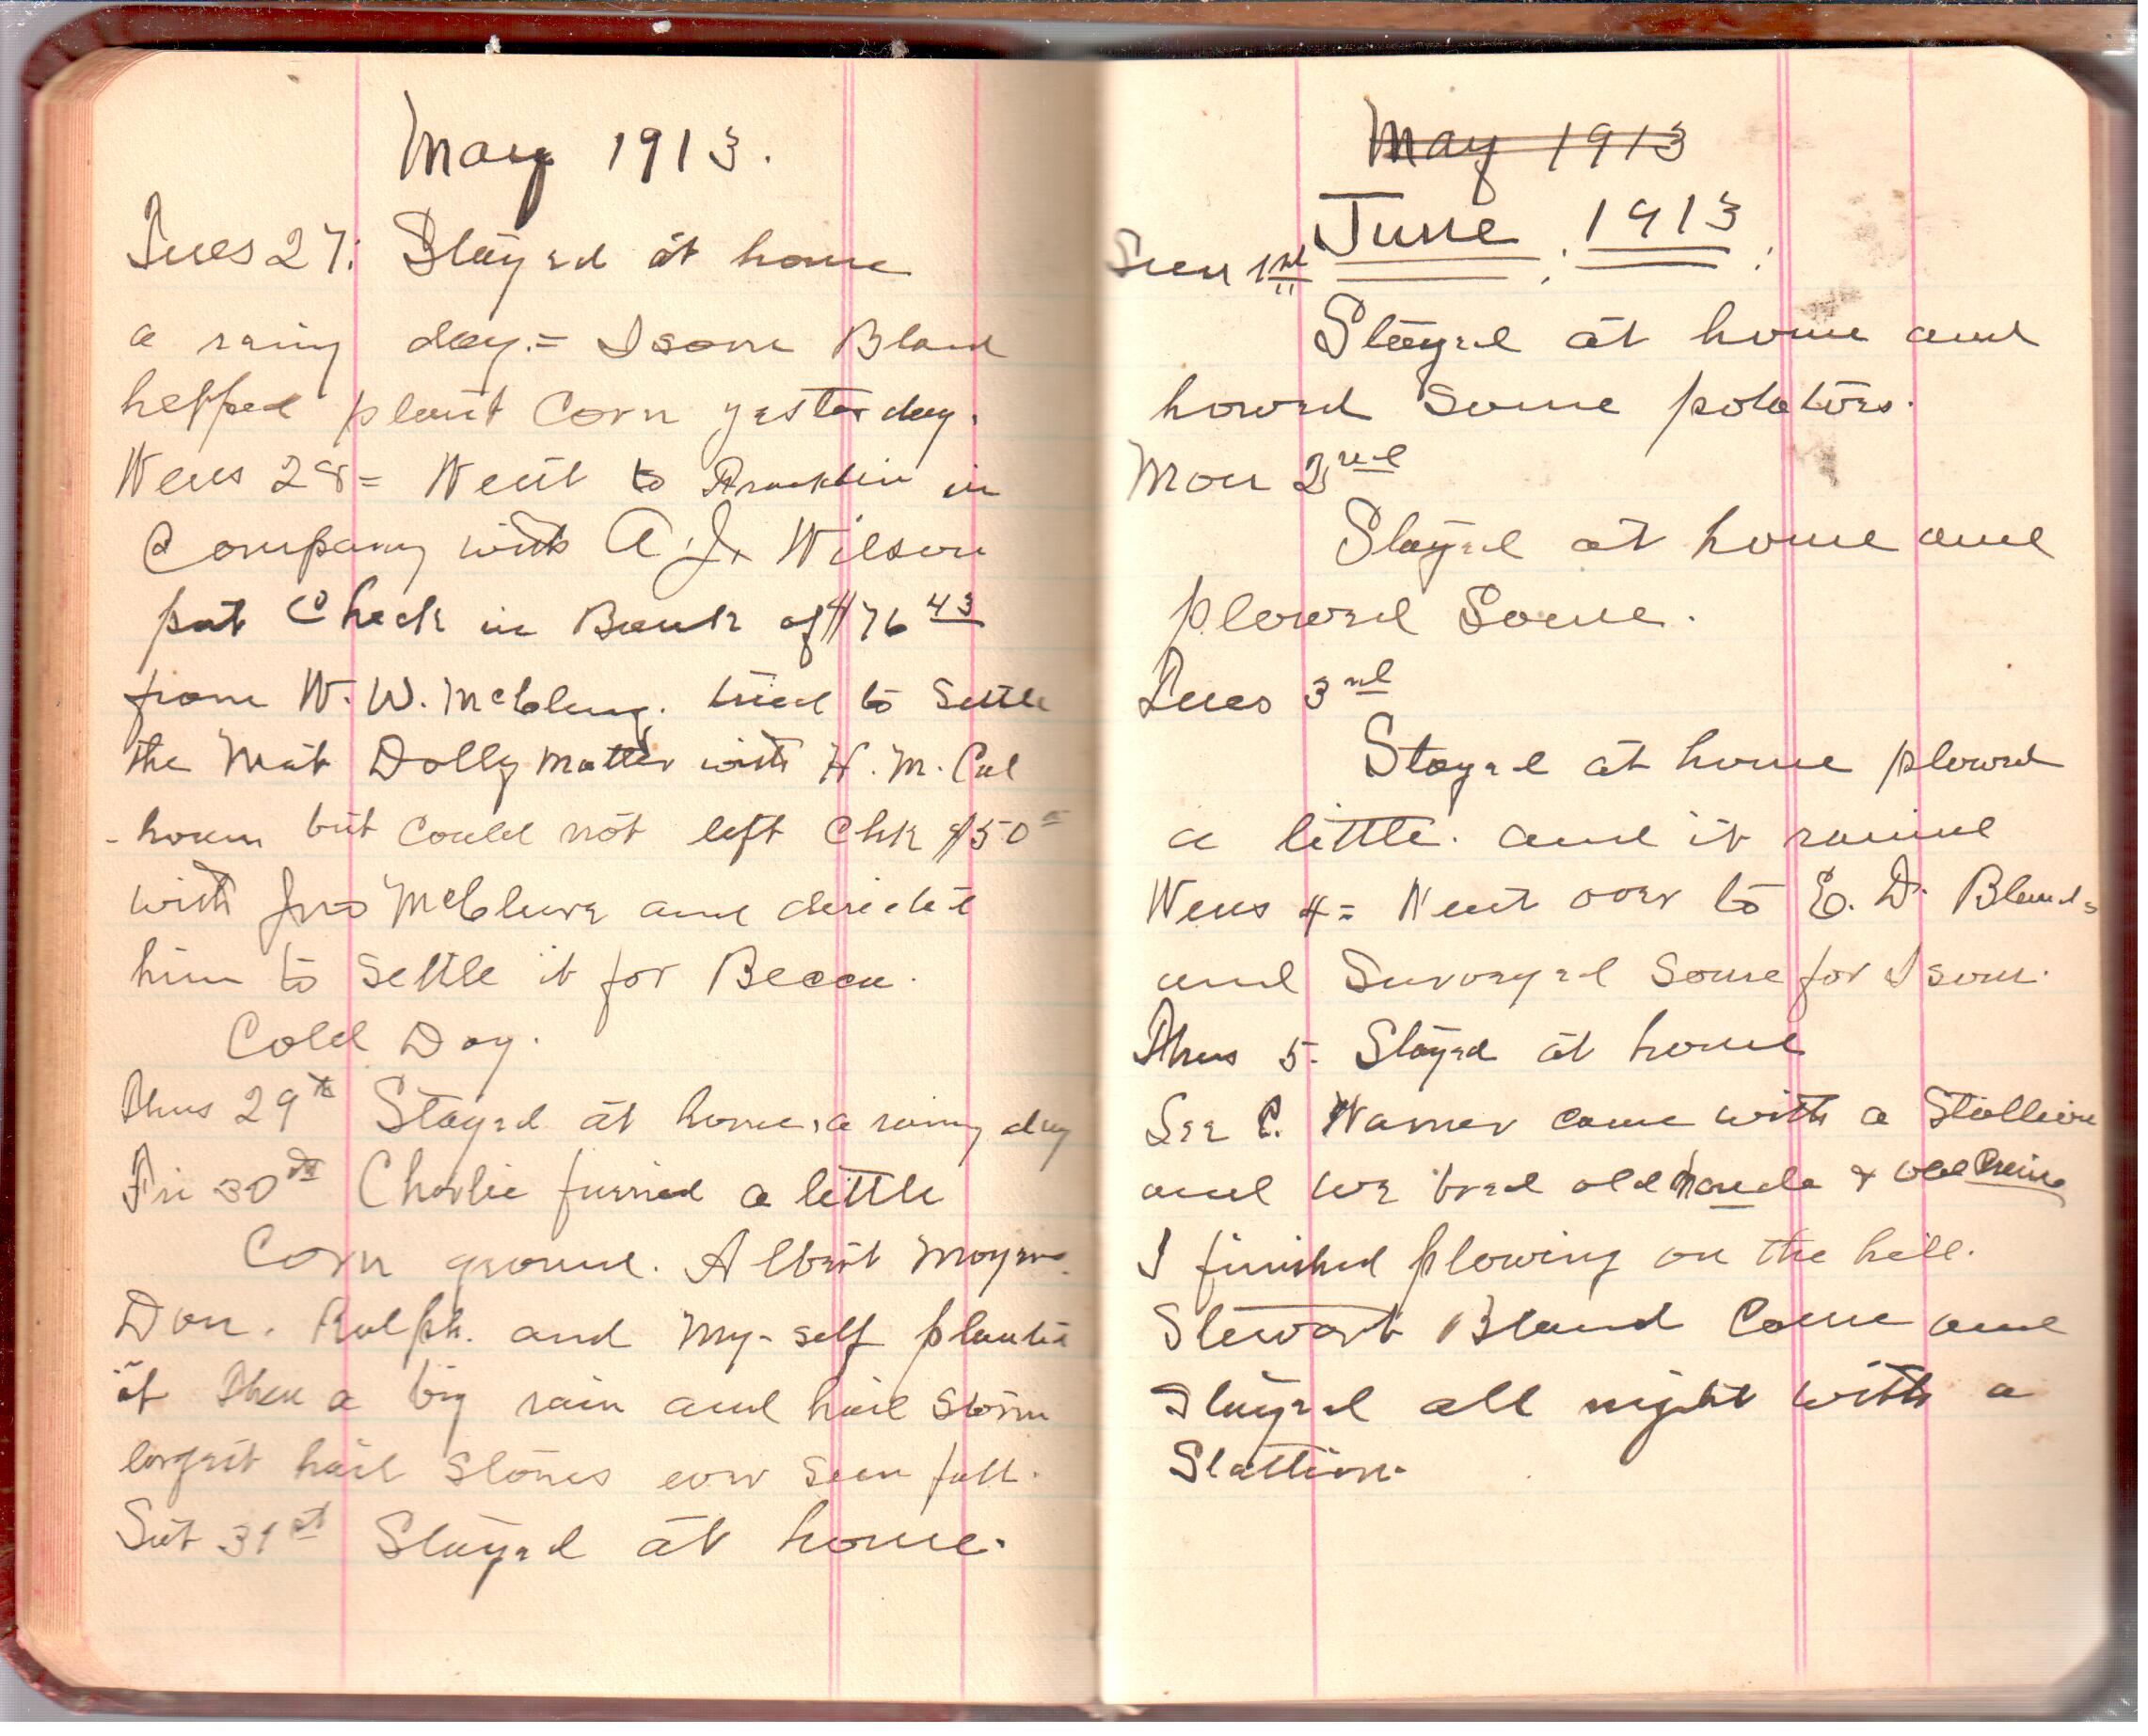 May 1913.
Tues 27: Stayed at home
a rainy day.= Isom Bland
helped plant Corn yesterday.
Wens 28= Went to Franklin in
Company with A. J. Wilson
put Check in Bank of $76 43
from W. W. McClung. tried to Settle
the Dolly matter with H. M. Cal
-houn but could not left Chk $50=
with Jno McClure and directed
him to settle it for Becca.
Cold Day.
Thus 29th Stayed at home, a rainy day
Fri 30th Charlie furried a little
Corn ground. Albert Moyers.
Don. Ralph. and My-self planted
it then a big rain and hail storm
largest hail stones ever seen fall.
Sat 31st Stayed at home.
May 1913
June 1913
Sun 1st
Stayed at home and
howed some potatoes.
Mon 2nd
Stayed at home and
plowed Some.
Tues 3rd
Stayed at home plowed
a little. and it rained
Wens 4= Went over to E. D. Blands
and Surveyed some for Isom.
Thus 5- Stayed at home
C. Warner came with a Stallion
and we bred old Maude & old
I finished plowing on the hill.
Stewart Bland Came and
Stayed all night with a
Stattion.